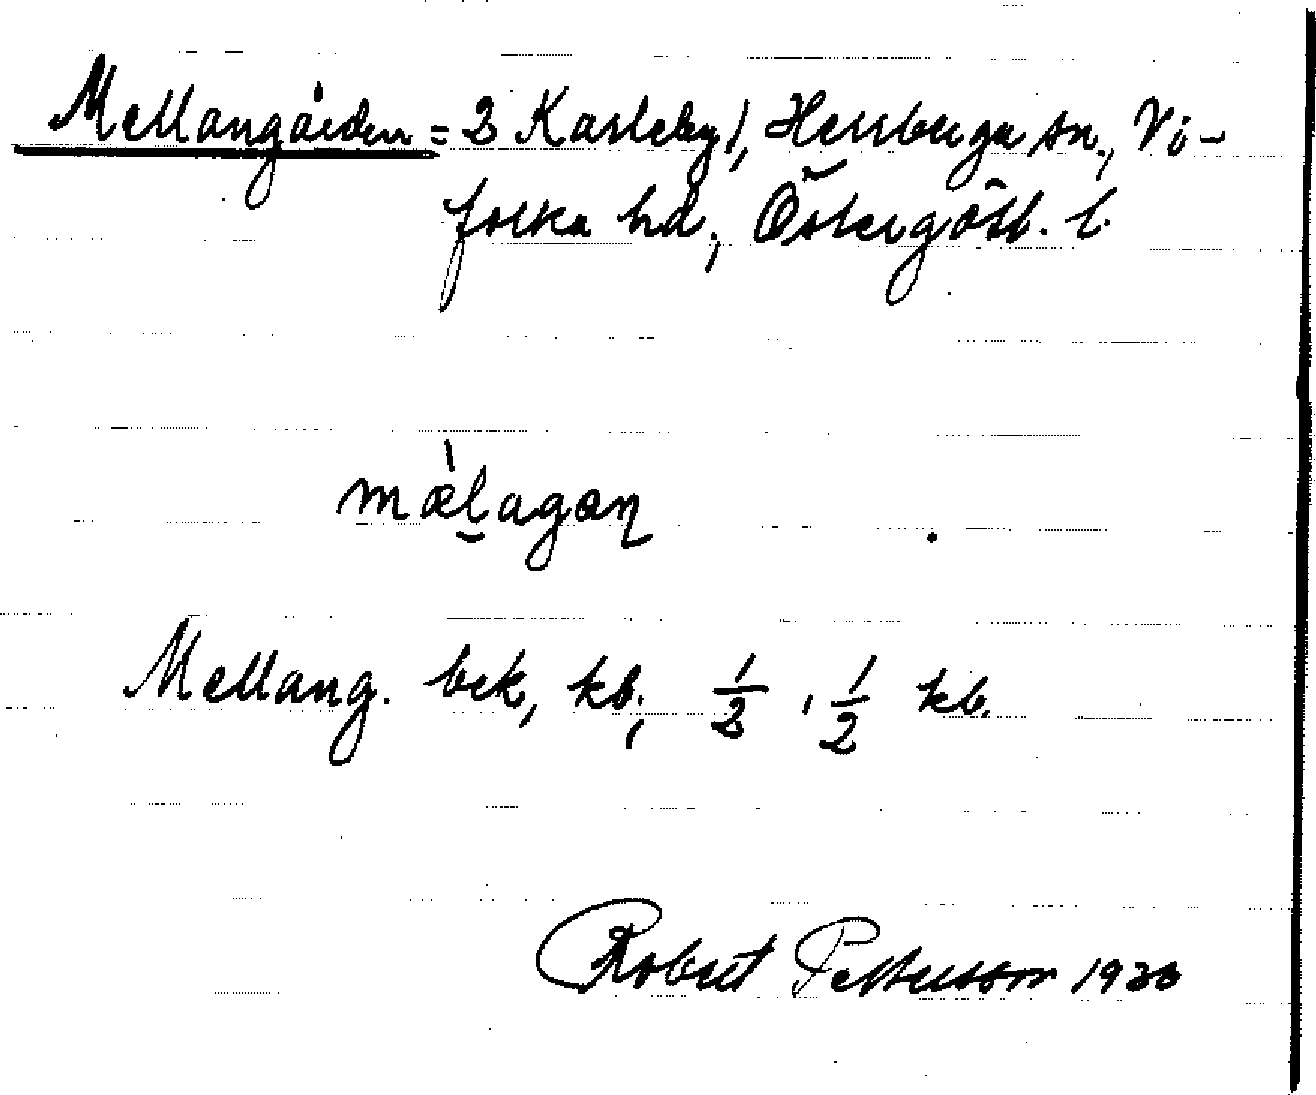 Mellangården = 2 Karleby 1, Herrberga sn., Vi-
folka hd., Östergötl. l.
mælagaɳ
Mellang. bek, kb; 1/2, 1/2 kb.
Robert Pettersson 1930